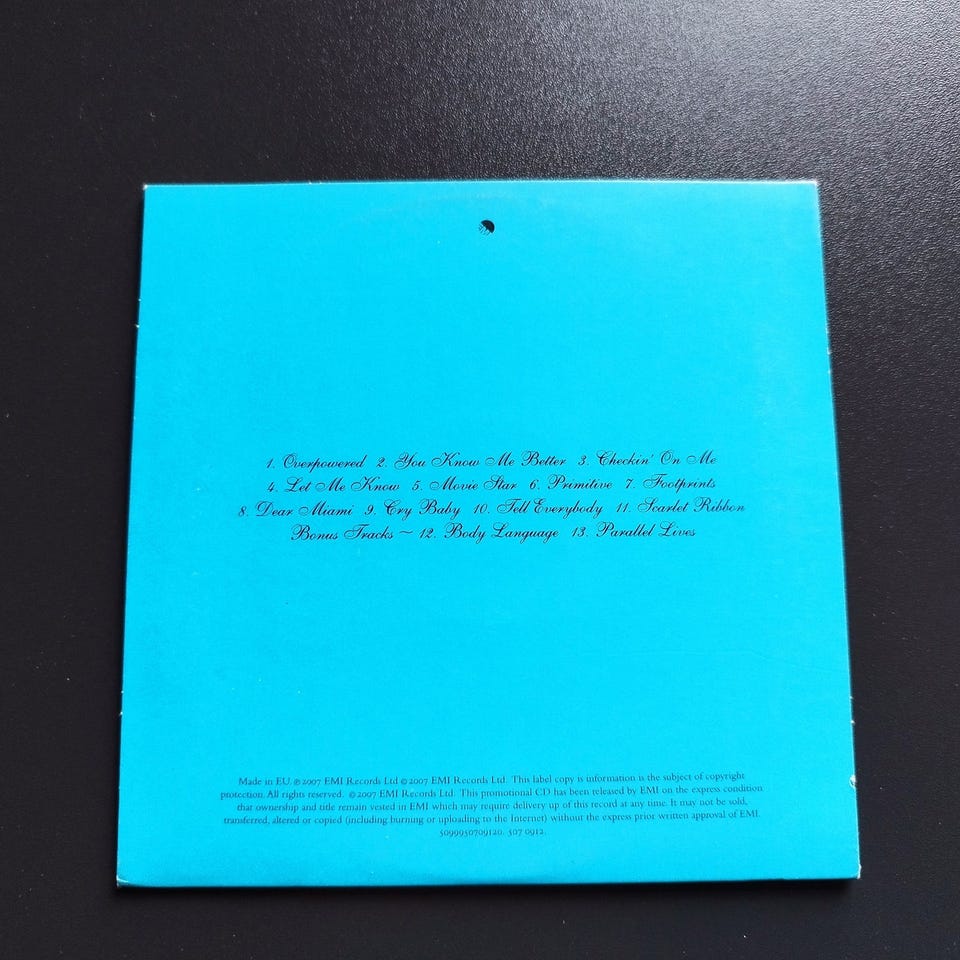 1. Overpowered 2. You Know Me Better 3. Checkin' On Me
4. Let Me Know 5. Movie Star 6. Primitive 7. Footprints
8. Dear Miami 9. Cry Baby 10. Tell Everybody 11. Scarlet Ribbon
Bonus Tracks ~ 12. Body Language 13. Parallel Lives
Made in EU. ℗ 2007 EMI Records Ltd © 2007 EMI Records Ltd. This label copy is information is the subject of copyright
protection. All rights reserved. © 2007 EMI Records Ltd. This promotional CD has been released by EMI on the express condition
that ownership and title remain vested in EMI which may require delivery up of this record at any time. It may not be sold,
transferred, altered or copied (including burning or uploading to the Internet) without the express prior written approval of EMI.
5099950709120. 507 0912.